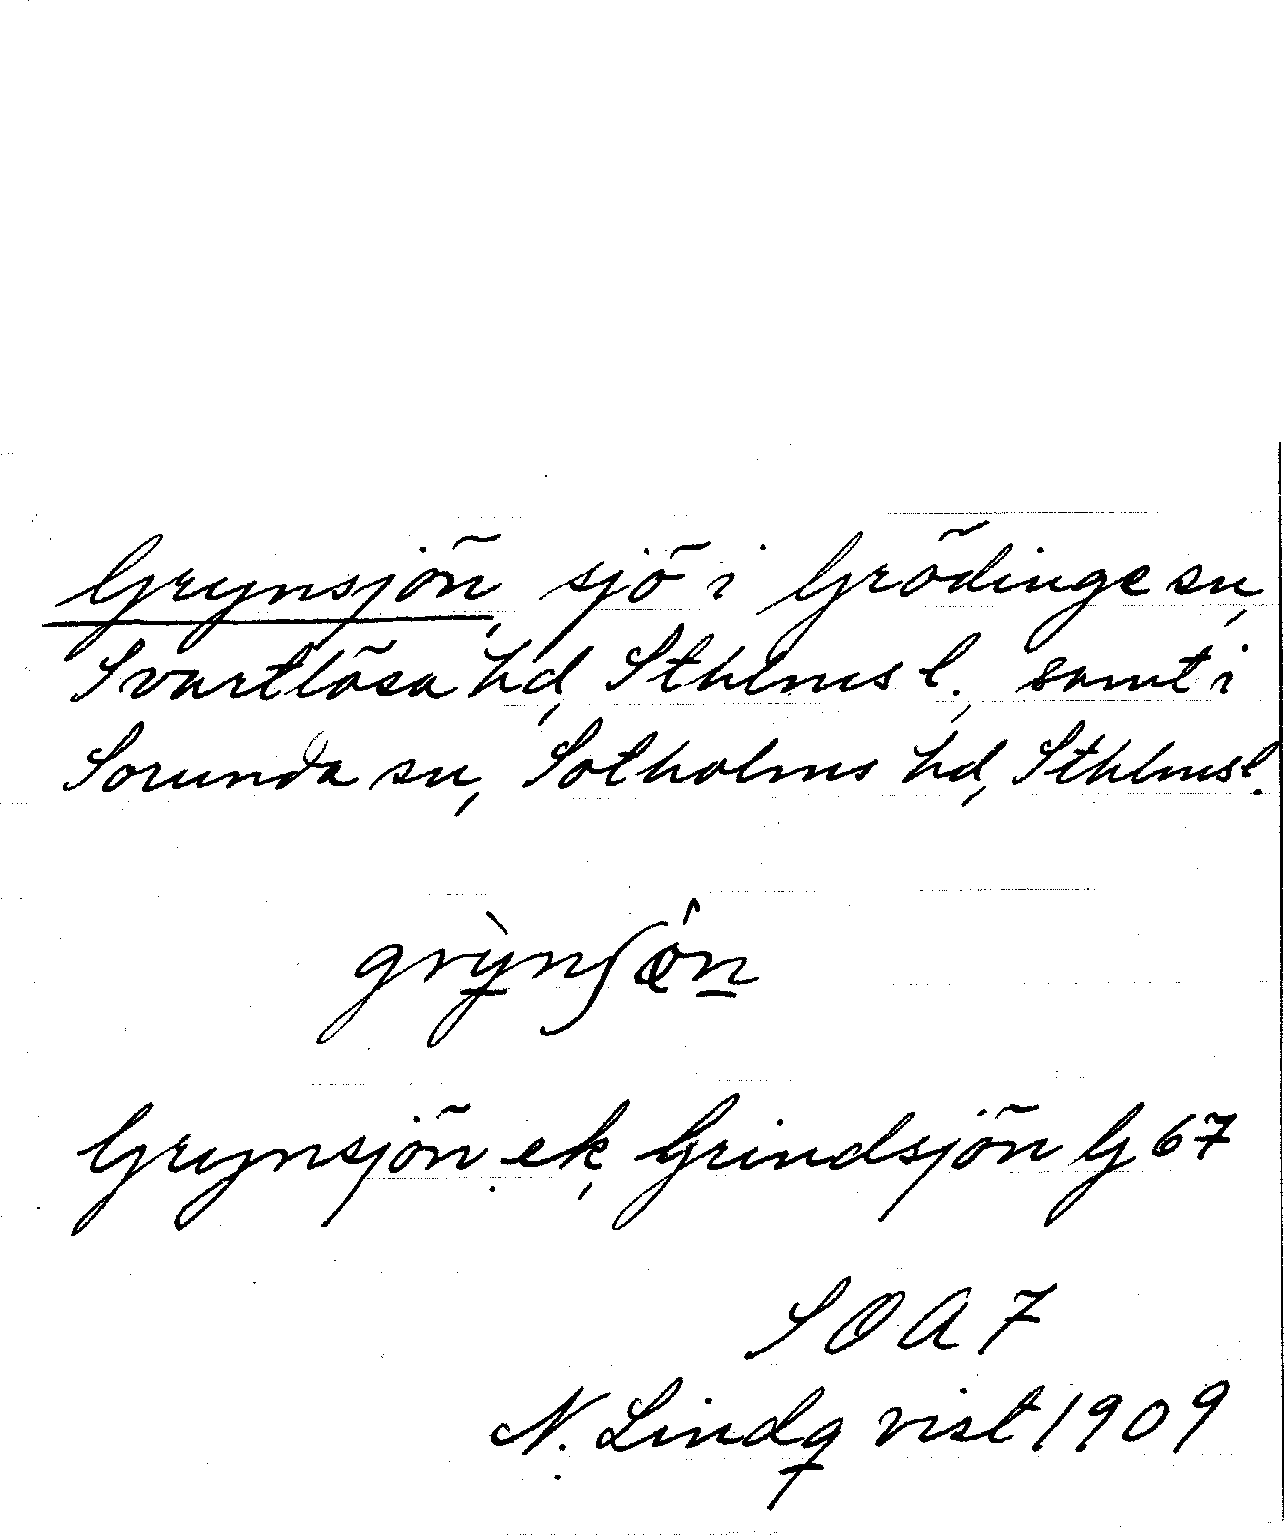 Grynsjön, sjö i Grödinge sn,
Svartlösa hd, Sthlms l., samt i
Sorunda sn, Sotholms hd, Sthlms l.
grỳnʃœ̂n
Grynsjön ek, Grindsjön G 67
SOA 7
N. Lindqvist 1909